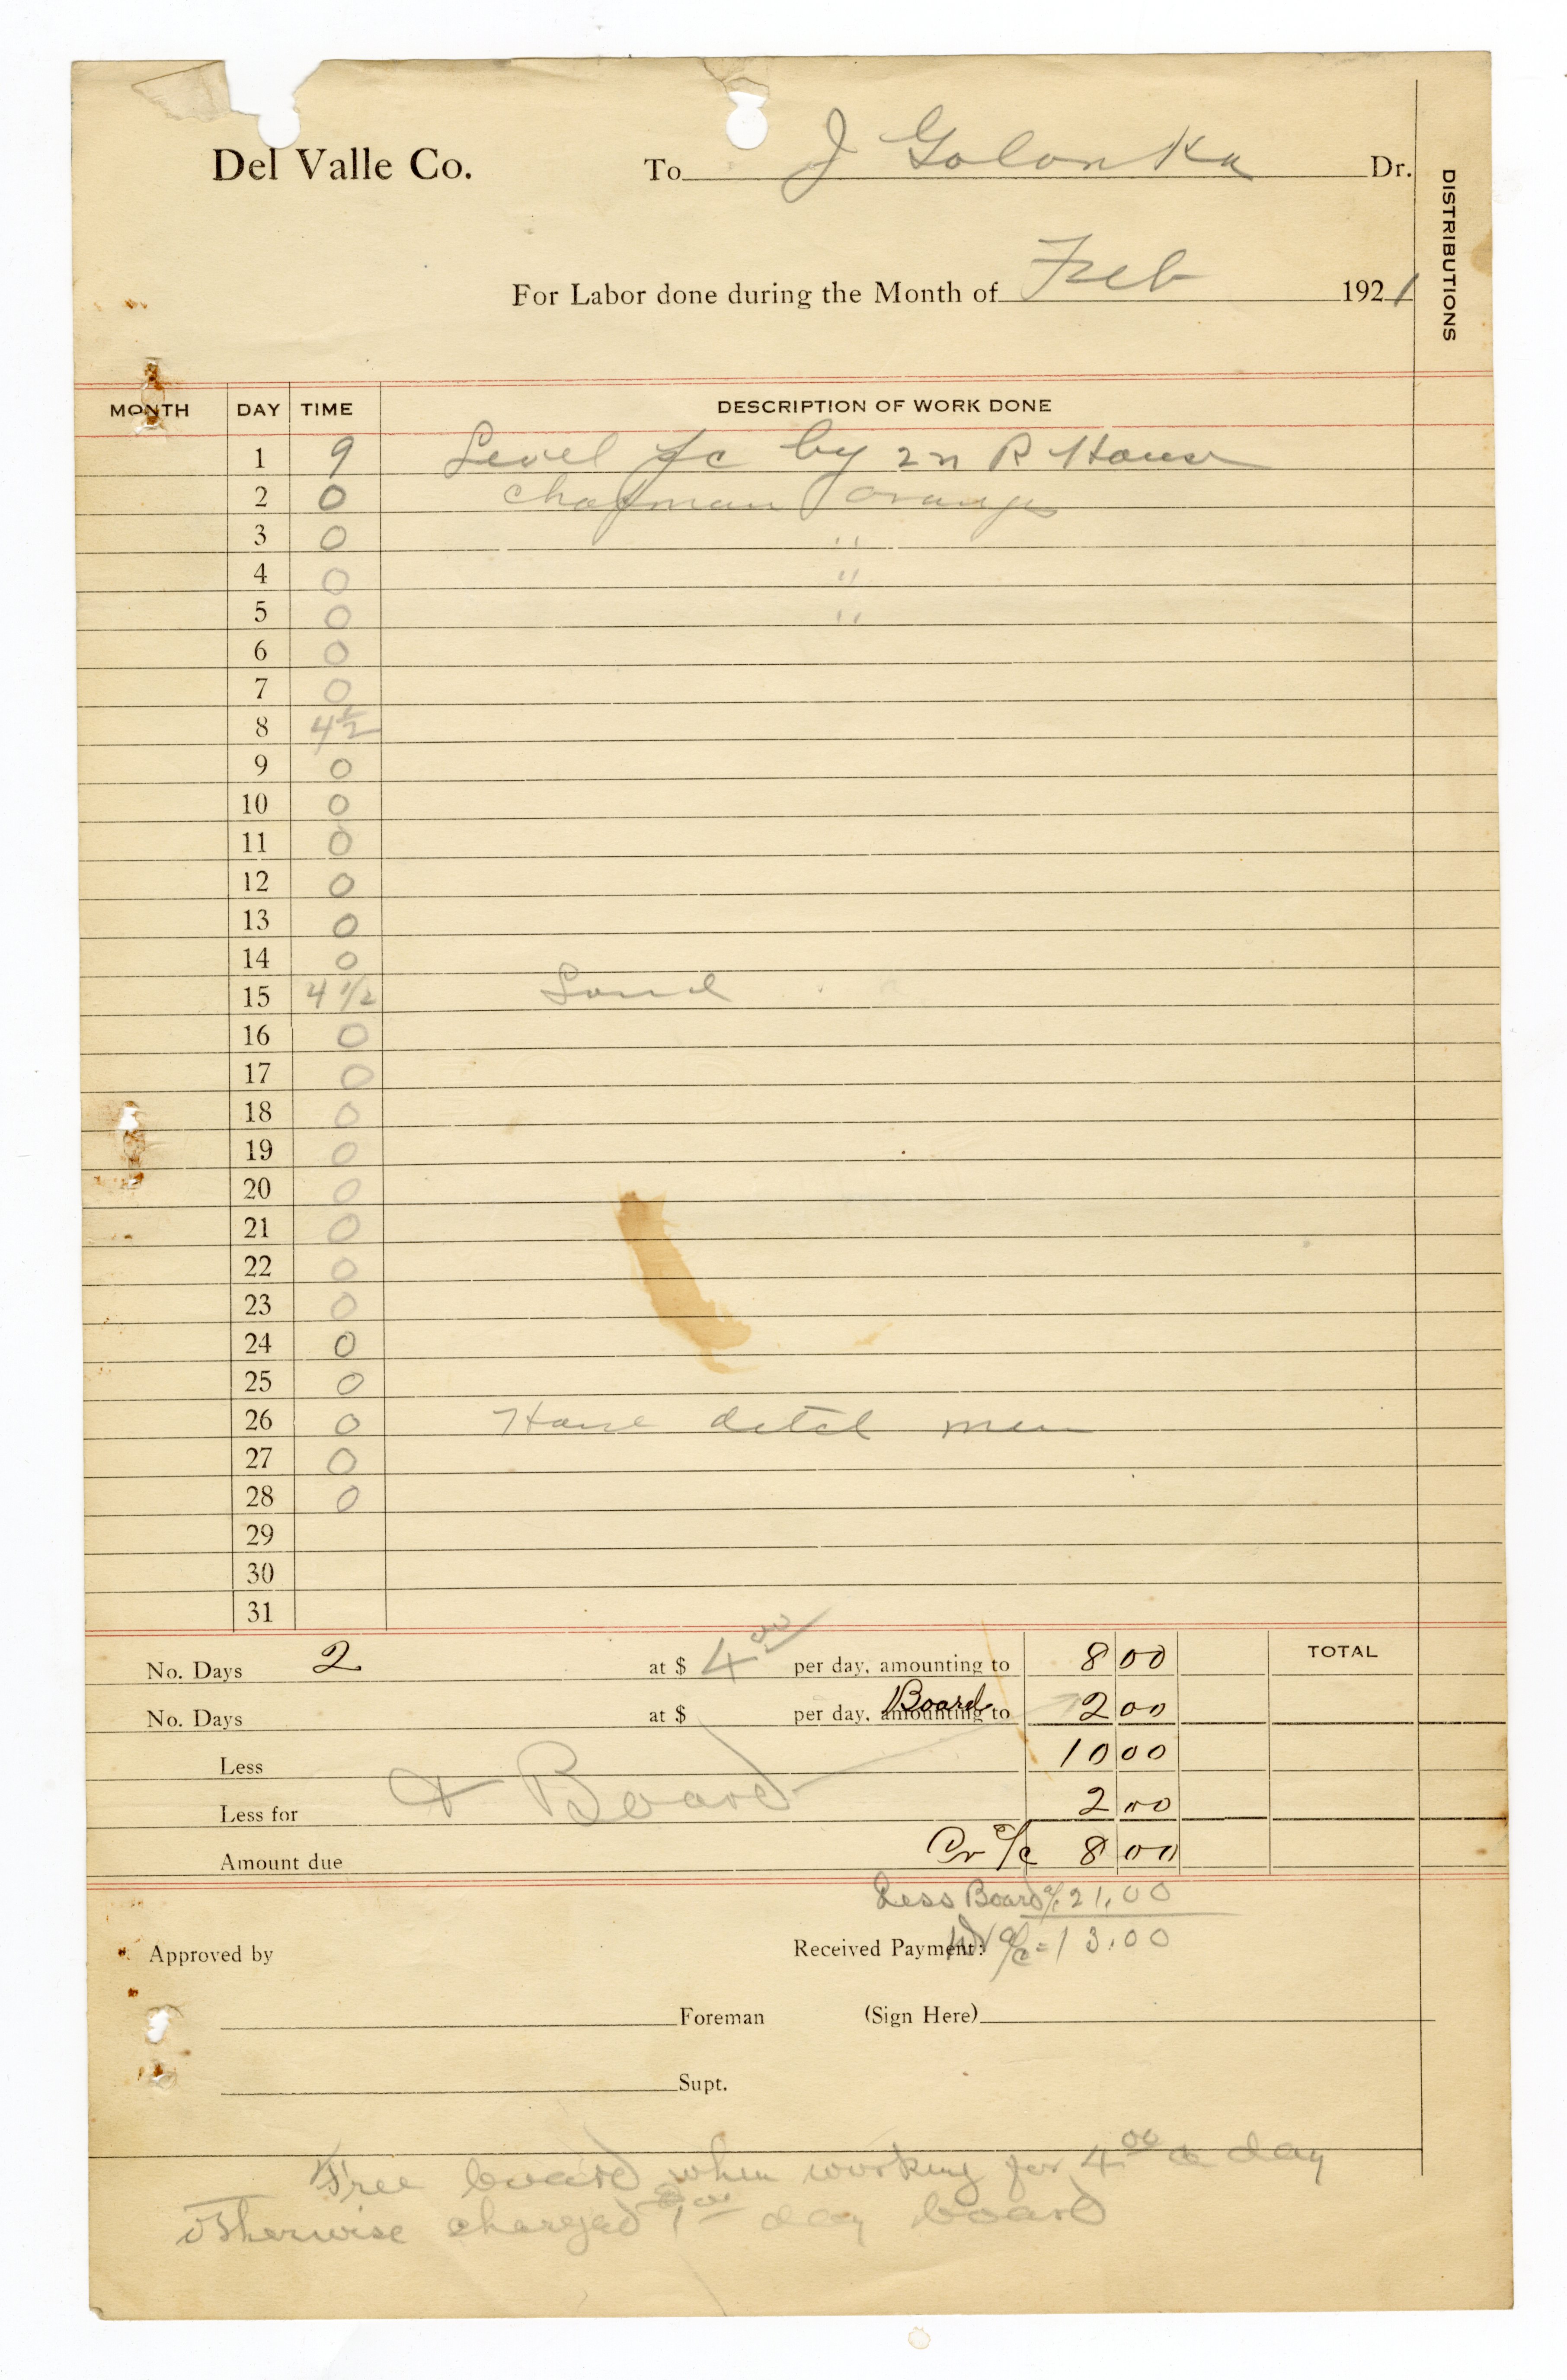 Del Valle Co. To J Golonka Dr.
DISTRIBUTIONS
For Labor done during the Month of Feb 1921
MONTH DAY TIME DESCRIPTION OF WORK DONE
1 9 Level by R House
2 0 Chapman orange
3 0 "
4 0 "
5 0 "
6 0
7 0
8 4 1/2
9 0
10 0
11 0
12 0
13 0
14 0
15 4 1/2
16 0
17 0
18 0
19 0
20 0
21 0
22 0
23 0
24 0
25 0
26 0 men
27 0
28 0
29
30
31
No. Days 2 at $ 4 00 per day, amounting to 8 00 TOTAL
No. Days at $ per day, amounting to Board 2 00
Less 10 00
Less for + Board 2 00
Amount due a/c 8 00
Less Board a/c 21.00
Approved by Received Payment: a/c = 13.00
Foreman (Sign Here)
Supt.
Free board when working for 4 00 a day
otherwise charged 1 00 day board